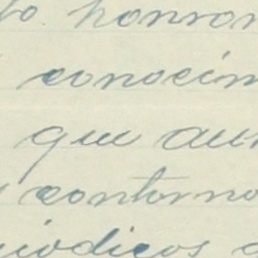 to. honron
conocim
que aun
contorno
riodicos